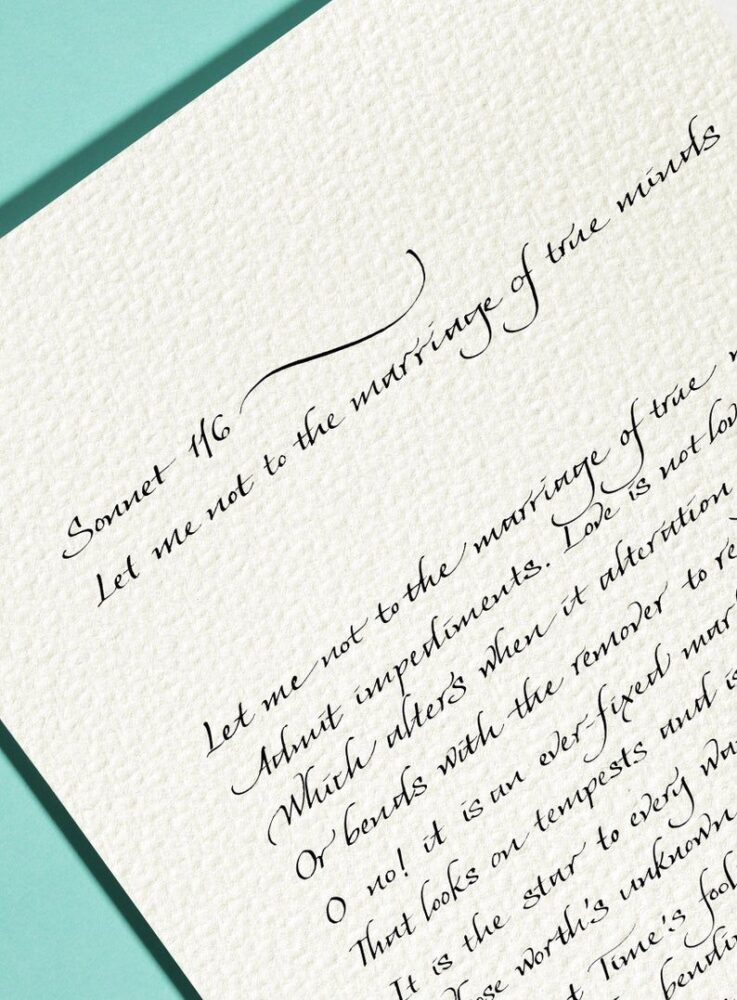 Sonnet 116
Let me not to the marriage of true minds
Let me not to the marriage of true
Admit impediments. Love is not lov
Which alters when it alteration
Or bends with the remover to re
O no! it is an ever-fixed mar
That looks on tempests and is
It is the star to every wa
worth's unknown
Time's fool
bendin